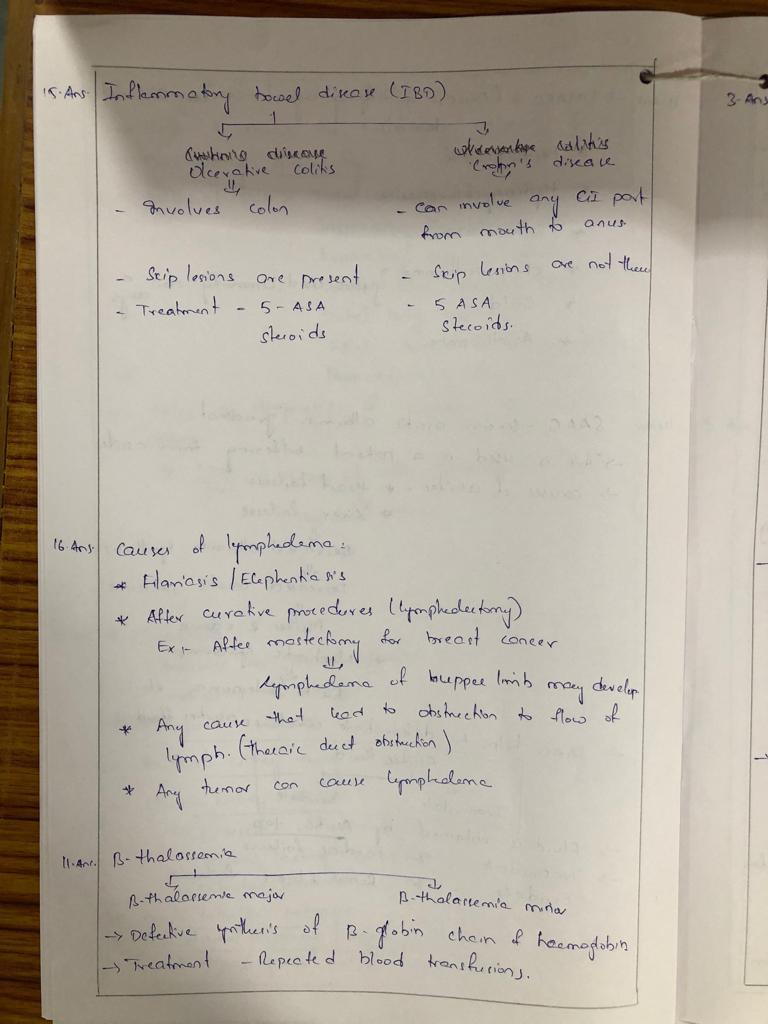 15. Ans. Inflammatory bowel disease (IBD)
Ulcerative colitis
Crohn's disease
- Involves colon
- Can involve any GI part
from mouth to anus.
- Skip lesions are present
- Skip lesions are not there
- Treatment - 5-ASA
steroids
- 5 ASA
Steroids.
16. Ans. Causes of lymphedema:
* Filariasis / Elephentiasis
* After curative procedures (lymphedectomy)
Ex:- After mastectomy for breast cancer
lymphedema of buppee limb may develop
* Any cause that lead to obstruction to flow of
lymph. (thoracic duct obstruction)
* Any tumor can cause lymphedema
11. Ans. B-thalassemia
B-thalassemia major
B-thalassemia minor
→ Defective synthesis of B-globin chain of haemoglobin
→ Treatment - Repeated blood transfusions.
3. Ans